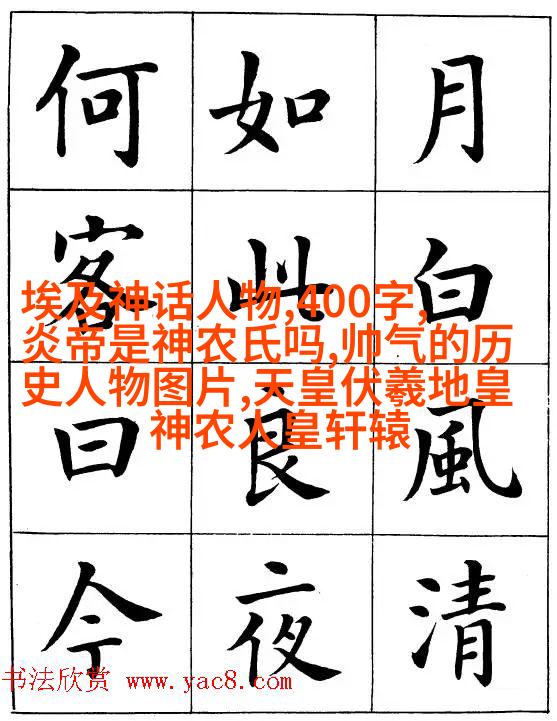 月白風清
如此良夜
何客曰今
埃及神话人物,400字,
炎帝是神农氏吗,帅气的历
史人物图片,天皇伏羲地皇
神农人皇轩辕
书法欣赏 www.yac8.com